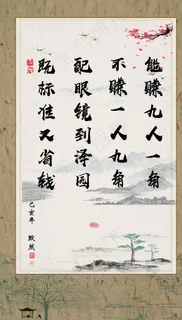 能赚九人一角
不赚一人九角
配眼镜到泽园
既标准又省钱
己亥年 默然